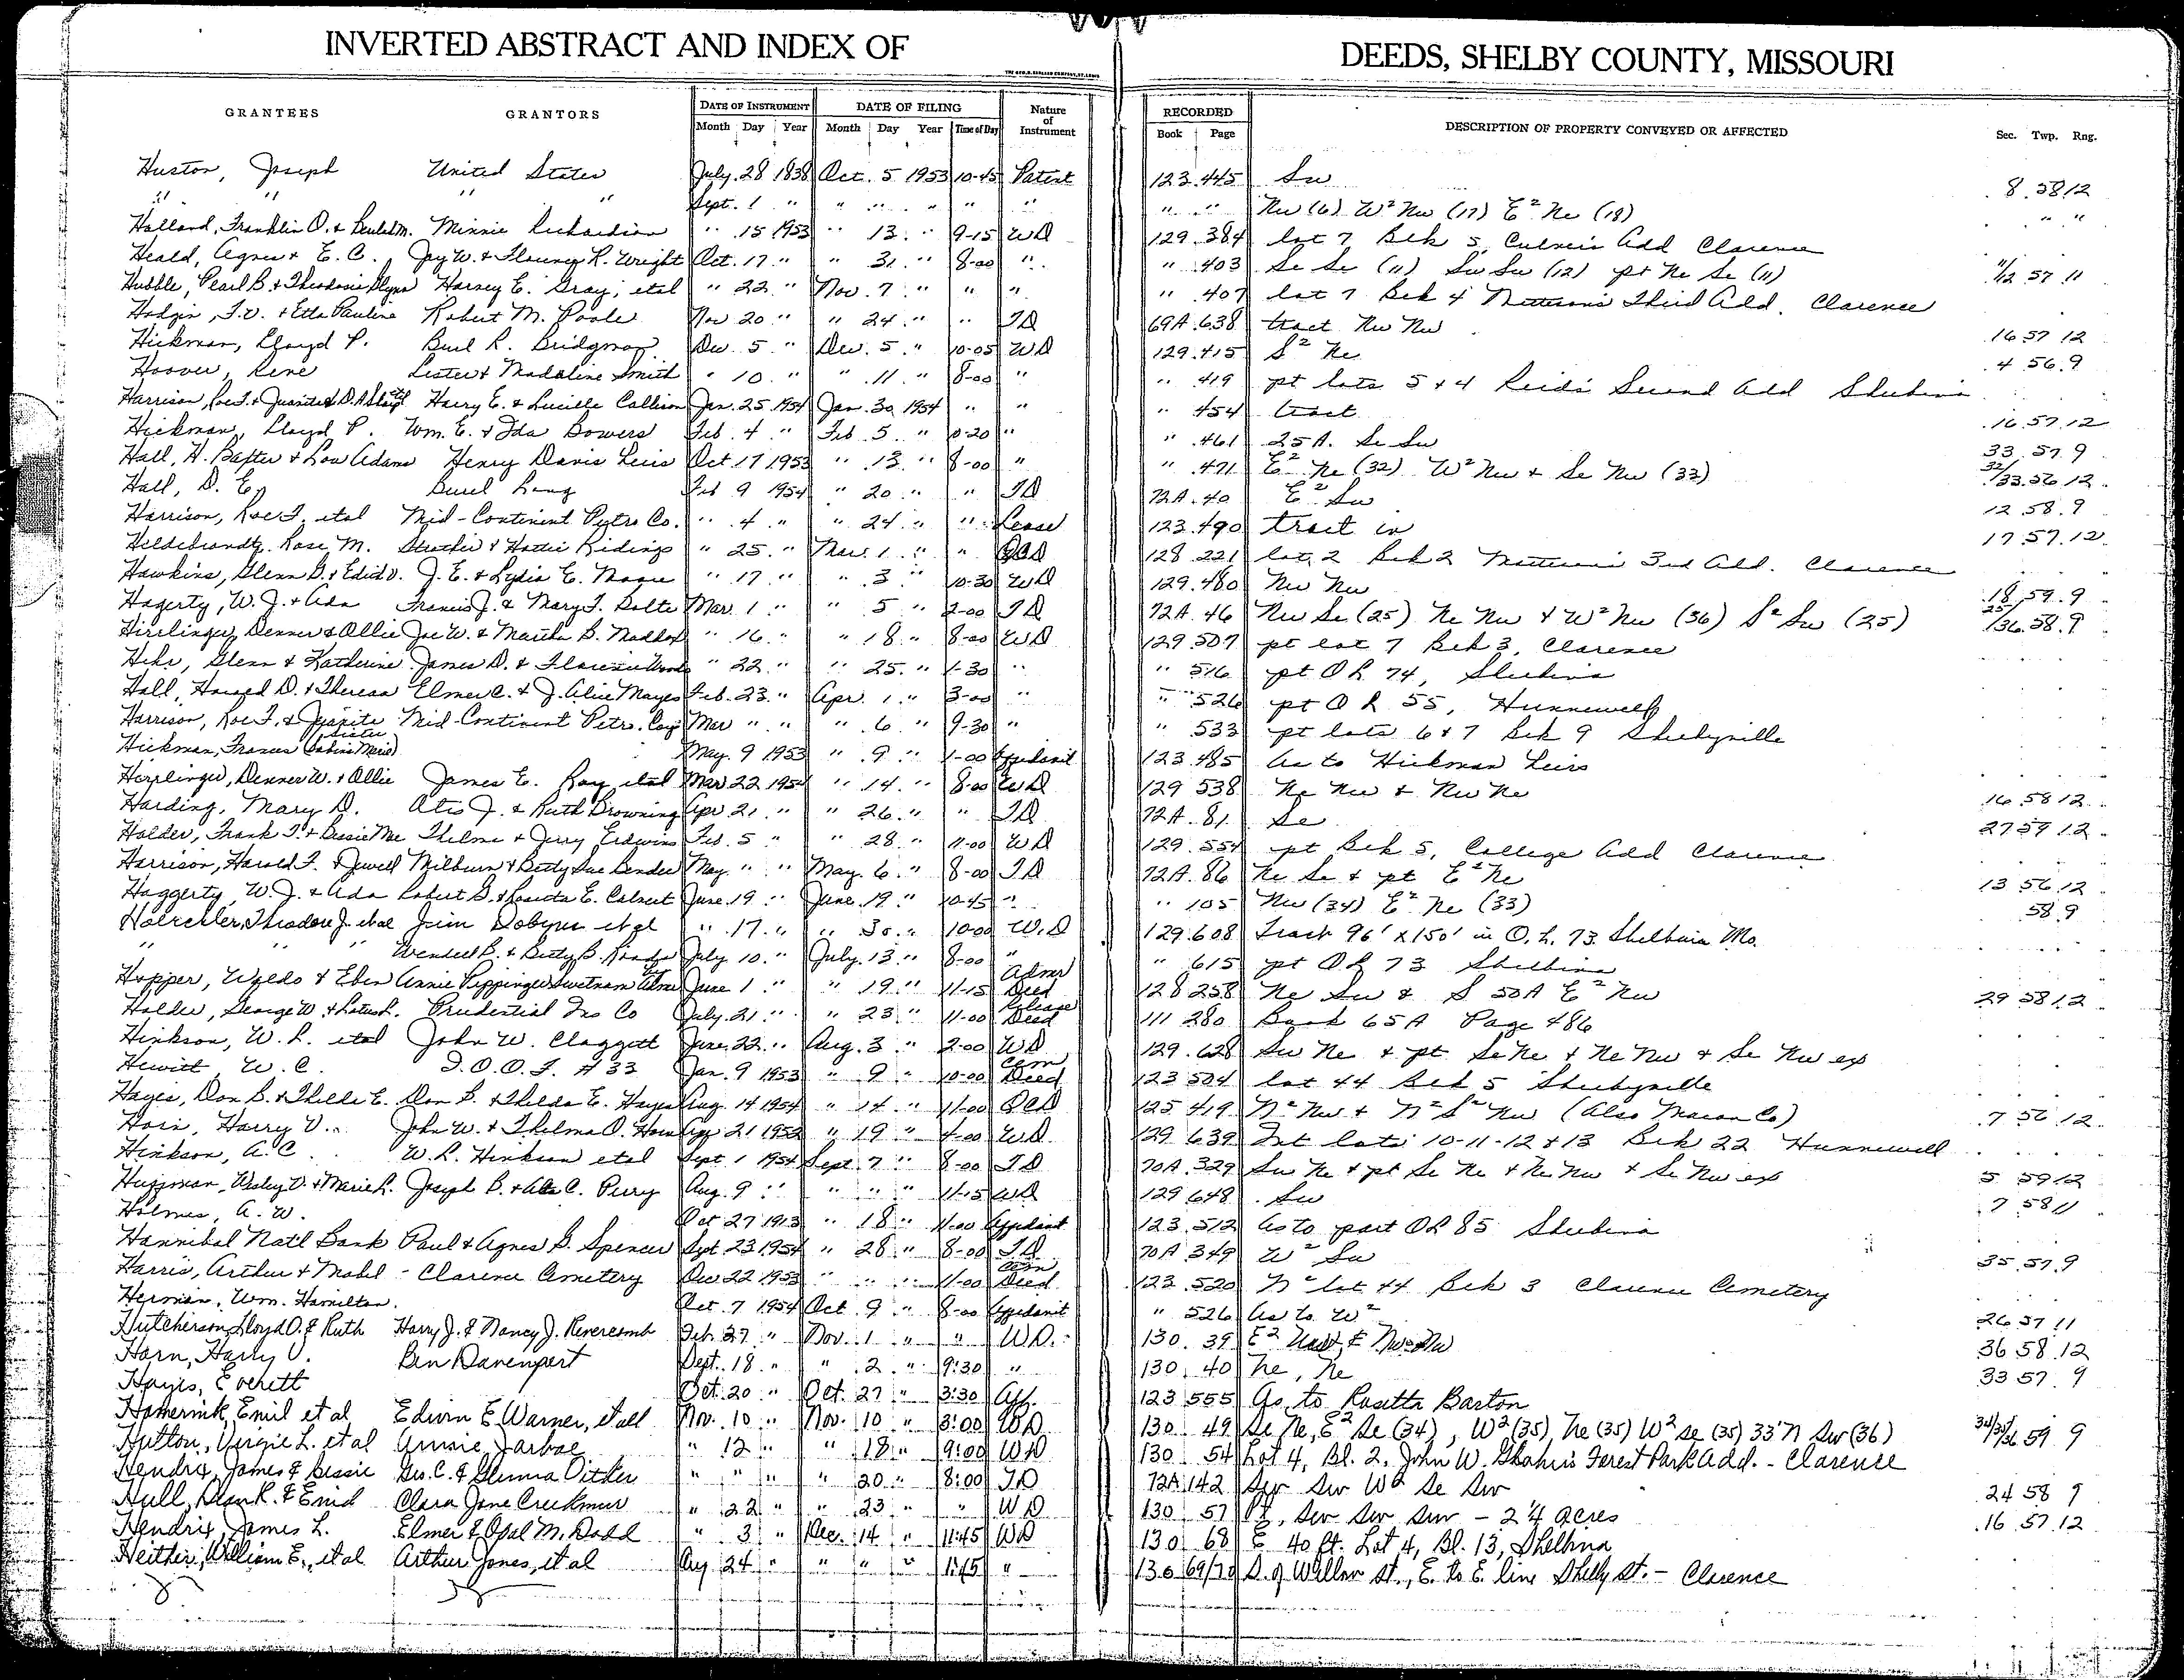 INVERTED ABSTRACT AND INDEX OF DEEDS, SHELBY COUNTY, MISSOURI
GRANTEES GRANTORS DATE OF INSTRUMENT DATE OF FILING Nature of Instrument RECORDED DESCRIPTION OF PROPERTY CONVEYED OR AFFECTED Sec. Twp. Rng.
Month Day Year Month Day Year Time of Day Book Page
Huston, Joseph United States July 28 1838 Oct. 5 1953 10-45 Patent 123 445 Sw 8 58 12
" " " Sept. 1 " " " " " " " " Nw (6) W² Nw (17) E² Ne (18) " "
Holland, Franklin O. & Beulah M. Minnie Richardson " 15 1953 " 13 " 9-15 WD 129 384 lot 7 Blk 5, Culver's Add Clarence
Heald, Agnes & E. C. Jay W. & Florence R. Wright Oct. 17 " " 31 " 8-00 " " 403 Se Se (11) Sw Sw (12) pt Ne Se (11) 11/12 57 11
Hubble, Pearl B. & Theodosia Harvey E. Gray, etal " 22 " Nov. 7 " " " " 407 lot 7 Blk 4 Third Add. Clarence
Hodgin, & Etta Pauline Robert M. Poole Nov 20 " " 24 " " TD 69A 638 tract Nw Nw 16 57 12
Hickman, Lloyd P. Burl R. Bridgman Dec. 5 " Dec. 5 " 10-05 WD 129 415 S² Ne 4 56 9
Hoover, Rene Lester & Madaline Smith " 10 " " 11 " 8-00 " " 419 pt lots 5 & 4 Reid's Second Add Shelbina
Harrison, Roe F. & Juanita & Harry E. & Lucille Callison Jan. 25 1954 Jan. 30 1954 " " " 454 tract 16 57 12
Hickman, Lloyd P. Wm. E. & Ida Bowers Feb. 4 " Feb. 5 " 10-20 " " 461 25 A. Se Sw 33 57 9
Hall, H. Baxter & Lou Adams Henry Davis Oct 17 1953 " 13 " 8-00 " " 471 E² Ne (32) W² Nw & Se Nw (33) 32/33 56 12
Hall, D. E. Burel Lang Feb 9 1954 " 20 " " TD 72A 40 E² Sw 12 58 9
Harrison, Roe F. etal Mid-Continent Petro Co. " 4 " " 24 " " Lease 123 490 tract in 17 57 12
Hildebrandt, Rose M. Strother & Hattie Ridings " 25 " Mar. 1 " " QCD 128 221 lot 2 Blk 2 3rd Add. Clarence
Hawkins, Glenn G. & Edid V. J. E. & Lydia E. Moore " 17 " " 3 " 10-30 WD 129 480 Nw Nw 18 59 9
Hagerty, W. J. & Ada Francis J. & Mary F. Bolte Mar. 1 " " 5 " 2-00 TD 72A 46 Nw Se (25) Ne Nw & W² Nw (36) S² Sw (25) 25/36 58 9
Hirrlinger, Denner & Ollie Joe W. & Martha B. Maddox " 16 " " 18 " 8-00 WD 129 507 pt lot 7 Blk 3, Clarence
Glenn & Katherine James D. & Florence Wood " 22 " " 25 " 1-30 " " 516 pt OL 74, Shelbina
Hall, Howard D. & Theresa Elmer C. & J. Alice Mayes Feb. 23 " Apr. 1 " 3-00 " " 526 pt O L 55, Hunnewell
Harrison, Roe F. & Juanita Mid-Continent Petro. Corp Mar " " " 6 " 9-30 " " 533 pt lots 6 & 7 Blk 9 Shelbyville
Hickman, Frances (Sister Sabina Marie) May 9 1953 " 9 " 1-00 Affidavit 123 485 As to Hickman heirs
Hirrlinger, Denner W. & Ollie James E. Ray etal Mar 22 1954 " 14 " 8-00 WD 129 538 Ne Nw & Nw Ne 16 58 12
Harding, Mary D. Otis J. & Ruth Browning Apr 21 " " 26 " " TD 72A 81 Se 27 59 12
Holder, Frank T. & Bessie Mae Thelma & Jerry Edwins Feb. 5 " " 28 " 11-00 WD 129 554 pt Blk 5, College Add Clarence
Harrison, Harold F. & Jewell Milburn & Betty Sue Bender May " " May 6 " 8-00 TD 72A 86 Ne Se & pt E² Ne 13 56 12
Haggerty, W. J. & Ada Robert G. & Rosetta E. Calvert June 19 " June 19 " 10-45 " " 105 Nw (34) E² Ne (33) 58 9
Hoerchler, Theodore J. et al Jim Dobyns et al " 17 " " 30 " 10-00 W.D 129 608 Tract 96' x 150' in O. L. 73 Shelbina Mo.
" " " Wendell B. & Betty B. July 10 " July 13 " 8-00 " " 615 pt OL 73 Shelbina
Hopper, Waldo & Eben Annie Pippinger Swetnam June 1 " " 19 " 11-15 Admr Deed 128 258 Ne Sw & S 50A E² Nw 29 58 12
Holder, George W. & Prudential Ins Co July 21 " " 23 " 11-00 Release Deed 111 280 Book 65A Page 486
Hinkson, W. L. etal John W. Claggett June 22 " Aug. 3 " 2-00 WD 129 628 Sw Ne & pt Se Ne & Ne Nw & Se Nw ex
Hewitt, W. C. I.O.O.F. # 33 Jan. 9 1953 " 9 " 10-00 Cem Deed 123 504 lot 44 Blk 5 Shelbyville
Hayes, Don B. & Thelda E. Don B. & Thelda E. Hayes Aug. 14 1954 " 14 " 11-00 QCD 125 419 N² Nw & N² S² Nw (Also Macon Co) 7 56 12
Horn, Harry V. John W. & Thelma O. Horn 21 1952 " 19 " 4-00 WD 129 639 Int lots 10-11-12 & 13 Blk 22 Hunnewell
Hinkson, A. C. W. L. Hinkson etal Sept 1 1954 Sept 7 " 8-00 TD 70A 329 Sw Ne & pt Se Ne & Ne Nw & Se Nw ex 5 59 12
Huffman, Wesley V. & Marie L. Joseph B. & Alta C. Perry Aug. 9 " " " " 11-15 WD 129 648 Sw 7 58 11
Holmes, A. W. Oct 27 1913 " 18 " 11-00 Affidavit 123 512 As to part OL 85 Shelbina
Hannibal Nat'l Bank Paul & Agnes G. Spencer Sept 23 1954 " 28 " 8-00 TD 70A 349 W² Sw 35 57 9
Harris, Arthur & Mabel - Clarence Cemetery Dec 22 1953 " " " 11-00 Cem Deed 123 520 N² lot 44 Blk 3 Clarence Cemetery
Herman, Wm. Hamilton Oct. 7 1954 Oct. 9 " 8-00 Affidavit " 526 As to W² 26 57 11
Hutcherson, Lloyd O. & Ruth Harry J. & Nancy J. Revercomb Feb. 27 " Nov. 1 " " W.D. 130 39 E² & Nw 36 58 12
Horn, Harry V. Ben Davenport Sept. 18 " " 2 " 9:30 " 130 40 Ne, Ne 33 57 9
Hayes, Everett Oct. 20 " Oct. 27 " 3:30 Aff. 123 555 As to Rosetta Barton
Hamernik, Emil et al Edwin E. Warner, et all Nov. 10 " Nov. 10 " 3:00 WD 130 49 Se Ne, E² Se (34), W² (35), Ne (35) W² se (35) 33' N Sw (36) 34/35/36 59 9
Hutton, Virgie L. et al Annie Jarboe " 12 " " 18 " 9:00 WD 130 54 Lot 4, Bl. 2, John W. Forest Park Add. - Clarence
Hendrix, James & Bessie Geo. C. & Glenna " " " " 20 " 8:00 TD 72A 142 Sw Sw W² Se Sw 24 58 9
Hull, & Enid Clara Jane Creekmur " 22 " " 23 " " WD 130 57 Pt. Sw Sw Sw - 2¼ acres 16 57 12
Hendrix, James L. Elmer & Opal M. Dodd " 3 " Dec. 14 " 11:45 WD 130 68 E 40 ft. Lot 4, Bl. 13, Shelbina
William E., et al Arthur Jones, et al Aug 24 " " " " 11:45 " 130 69/70 S. of Willow St., E. to E. line Shelby St. - Clarence